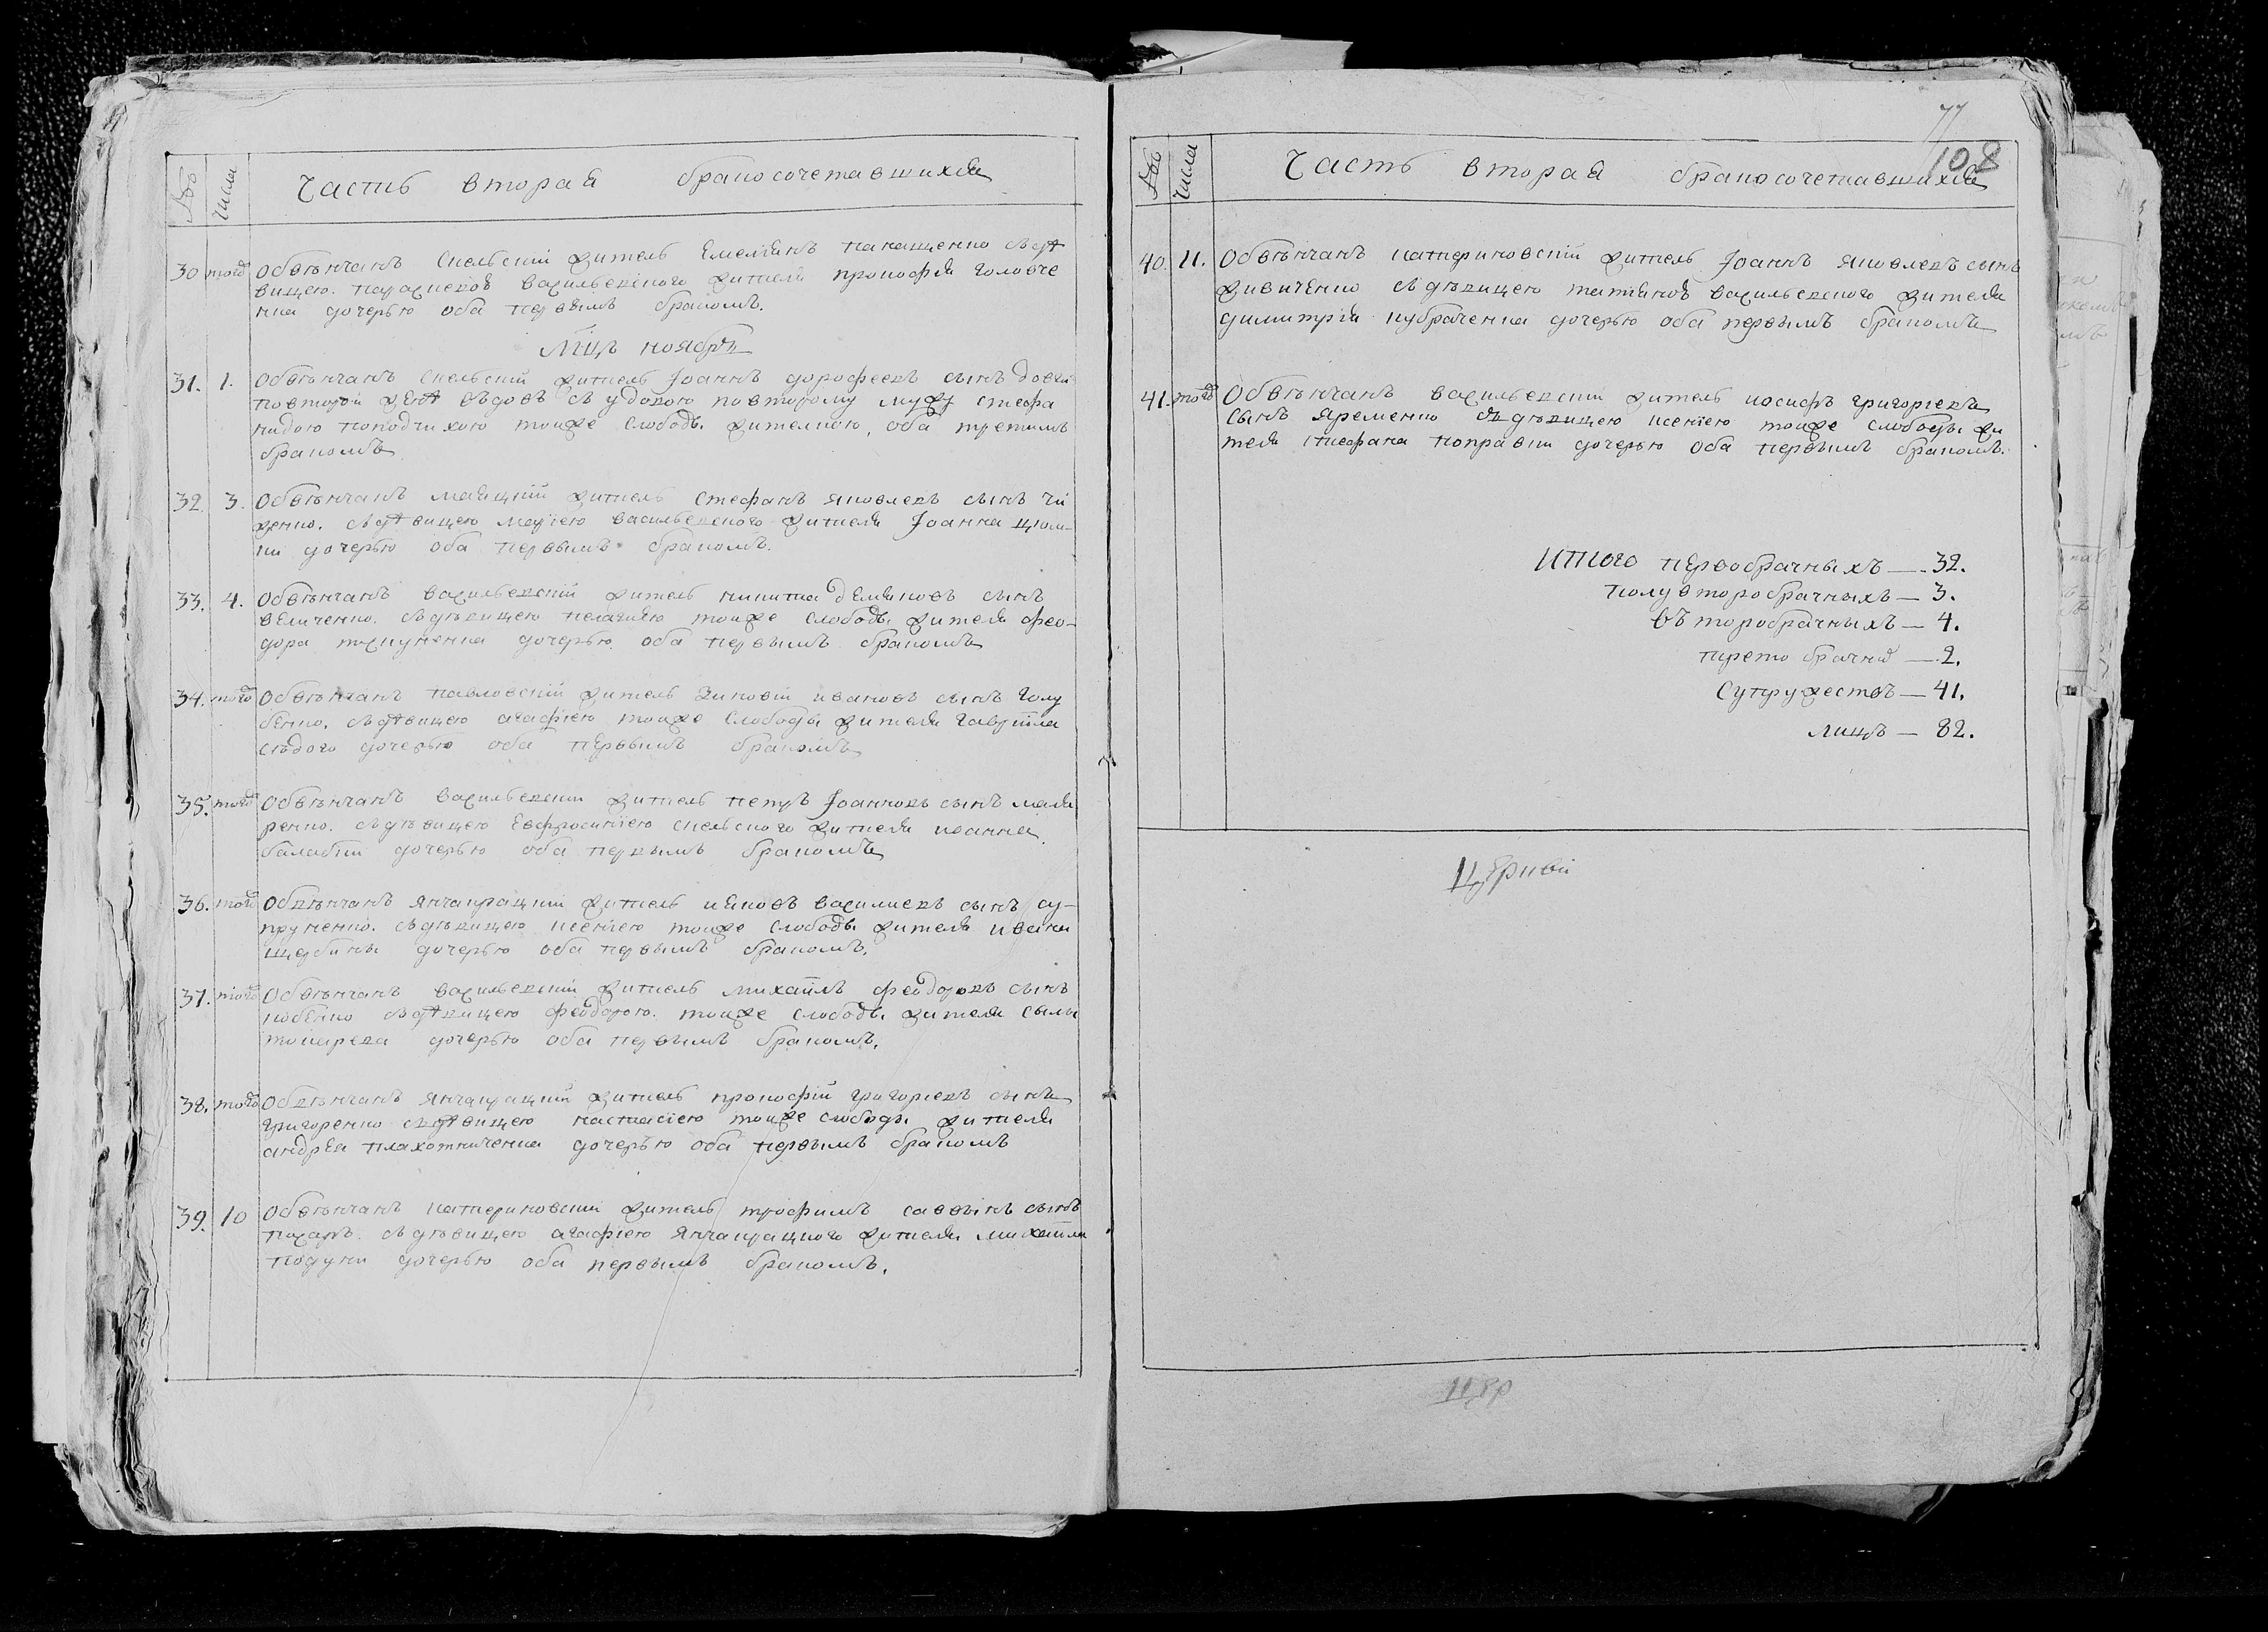 № числа Часть вторая бракосочетавшихся
30 тогож Обвѣнчанъ Скельскій житель Емеліянъ панащенко съ дѣ
вицею. параскевою Васильевского жителя прокофія головче
нка дочерью оба первымъ бракомъ.
Мцъ ноябрь
31. 1. Обвѣнчанъ Скельскій житель Іоаннъ дорофеевъ сынъ
по второй женѣ вѣдовъ съ удовою по второму мужу стефа
нидою тоиже слободы жителкою, оба третимъ
бракомъ
32 3. Обвѣнчанъ маяцкій житель Стефанъ яковлевъ сынъ чи
женко. съ дѣвицею маріею васильевского жителя Іоанна цюм-
ки дочерью оба первымъ бракомъ.
33. 4. Обвѣнчанъ васильевскій житель никита демяновъ сынъ
величенко. съ дѣвицею пелагіею тоиже слободы жителя фео-
дора дочерью. оба первымъ бракомъ
34. тогож Обвѣнчанъ павловскій житель Зиновій ивановъ сынъ голу
бенко. съ дѣвицею агафіею тоиже слободы жителя гавріила
сѣдого дочерью оба первымъ бракомъ
35. тогож Обвѣнчанъ васильевскій житель петръ Іоанновъ сынъ маля
ренко. съ дѣвицею Евфросиніею скельского жителя иоанна
балабки дочерью оба первымъ бракомъ
36. тогож Обвѣнчанъ янчакрацкій житель иаковъ василиевъ сынъ су-
пруненко. съ дѣвицею ксеніею тоиже слободы жителя ивана
щербины дочерью оба первымъ бракомъ.
37. тогож Обвѣнчанъ васильевскій житель михаилъ феодоровъ сынъ
кобенко съ дѣвицею феодорою. тоиже слободы жителя силы
токарева дочерью оба первымъ бракомъ.
38. тогож Обвѣнчанъ янчакрацкій житель прокофій григориевъ сынъ
григоренко съ дѣвицею настасіею тоиже слободы жителя
андрея плахотниченка дочерью оба первымъ бракомъ
39. 10 Обвѣнчанъ катериновскій житель трофимъ саввинъ сынъ
писаръ. съ дѣвицею агафіею янчакрацкого жителя михаила
кодуки дочерью оба первымъ бракомъ.
77
108
№ числа Часть вторая бракосочетавшихся
40. 11. Обвѣнчанъ катериновскій житель Іоаннъ яковлевъ сынъ
живиченко съ дѣвицею татіяною васильевского жителя
димитрія кубраченка дочерью оба первымъ бракомъ
41. тогож Обвѣнчанъ васильевскій житель иосифъ григориевъ
сынъ яременко съ дѣвицею ксеніею тоиже слободы жи
теля стефана коправки дочерью оба первымъ бракомъ.
ИТТого первобрачныхъ — 32.
полувторобрачныхъ — 3.
въторобрачныхъ — 4.
третобрачных — 2.
Супружествъ — 41.
лицъ — 82.
Церкви
Цер